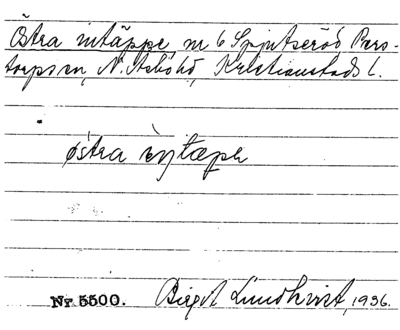 Östra intäppe, nr 6 Spjutseröd Pers-
torps sn, N. Åsbo hd, Kristianstads l.
östra ìntæpe
Nr 5500. Birgit Lundkvist, 1936.